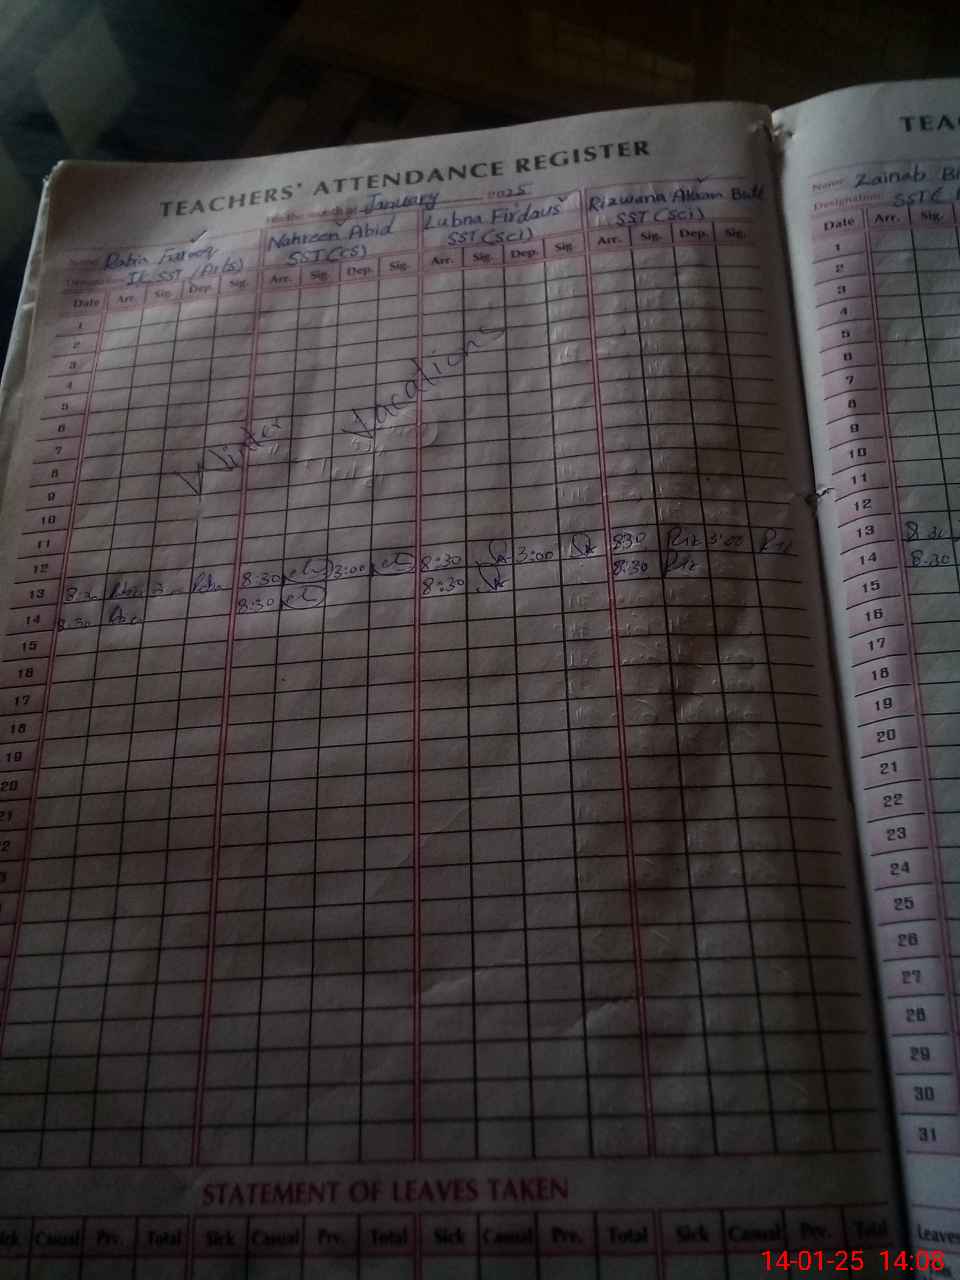 TEACHERS' ATTENDANCE REGISTER
For the month of January 2025
Name Rabia Farooq Nahreen Abid Lubna Firdaus Rizwana Akram Butt
Designation SST (Arts) SST (CS) SST (Sci) SST (Sci)
Date Arr. Sig. Dep. Sig. Arr. Sig. Dep. Sig. Arr. Sig. Dep. Sig. Arr. Sig. Dep. Sig.
1
2
3
4
5
6
7
8
9
10
11
12
Winter Vacations
13 8:30 8:30 3:00 8:30 3:00 830 Riz 3:00 Riz
14 8:30 8:30 8:30 8:30 Riz
15
16
17
18
19
20
21
STATEMENT OF LEAVES TAKEN
Sick Casual Prv. Total Sick Casual Prv. Total Sick Casual Prv. Total Sick Casual Prv. Total
TEA
Name Zainab B
Designation SSTE
Date Arr. Sig.
1
2
3
4
5
6
7
8
9
10
11
12
13 8:30
14 8:30
15
16
17
18
19
20
21
22
23
24
25
26
27
28
29
30
31
Leaves
14-01-25 14:08